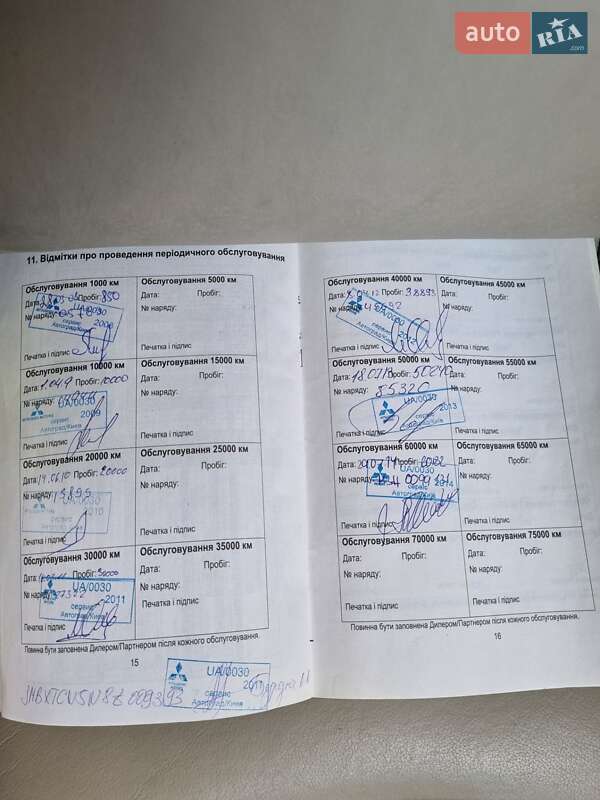 auto RIA.com
11. Відмітки про проведення періодичного обслуговування
Обслуговування 1000 км
Дата: Пробіг: 850
№ наряду:
UA/0030
сервіс
Автоград/Київ
Печатка і підпис
Обслуговування 5000 км
Дата: Пробіг:
№ наряду:
Печатка і підпис
Обслуговування 10000 км
Дата: Пробіг: 10000
№ наряду:
UA/0030
2009
сервіс
Автоград/Київ
Печатка і підпис
Обслуговування 15000 км
Дата: Пробіг:
№ наряду:
Печатка і підпис
Обслуговування 20000 км
Дата: Пробіг: 20000
№ наряду:
UA/0030
2010
Печатка і підпис
Обслуговування 25000 км
Дата: Пробіг:
№ наряду:
Печатка і підпис
Обслуговування 30000 км
Дата: Пробіг: 30000
№ наряду:
UA/0030
2011
сервіс
Автоград/Київ
Печатка і підпис
Обслуговування 35000 км
Дата: Пробіг:
№ наряду:
Печатка і підпис
Повинна бути заповнена Дилером/Партнером після кожного обслуговування.
15
UA/0030
сервіс
Автоград/Київ
Обслуговування 40000 км
Дата: Пробіг: 38893
№ наряду:
UA/0030
сервіс
Печатка і підпис
Обслуговування 45000 км
Дата: Пробіг:
№ наряду:
Печатка і підпис
Обслуговування 50000 км
Дата: Пробіг:
№ наряду:
85320
UA/0030
2013
сервіс
Автоград/Київ
Печатка і підпис
Обслуговування 55000 км
Дата: Пробіг:
№ наряду:
Печатка і підпис
Обслуговування 60000 км
Дата: Пробіг:
№ наряду:
UA/0030
2014
сервіс
Автоград/Київ
Печатка і підпис
Обслуговування 65000 км
Дата: Пробіг:
№ наряду:
Печатка і підпис
Обслуговування 70000 км
Дата: Пробіг:
№ наряду:
Печатка і підпис
Обслуговування 75000 км
Дата: Пробіг:
№ наряду:
Печатка і підпис
Повинна бути заповнена Дилером/Партнером після кожного обслуговування.
16